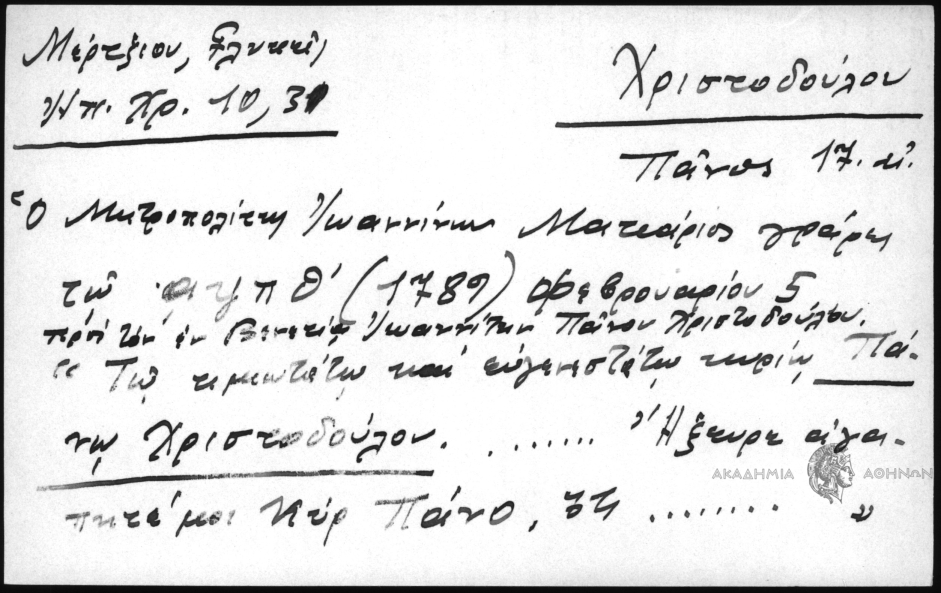 Μέρτζιου,
Ἠπ. Χρ. 10, 31
Χριστοδούλου
Πᾶνος 17. αἰ.
Ὁ Μητροπολίτης Ἰωαννίνων Μακάριος γράφει
τῷ αψπθ' (1789) Φεβρουαρίου 5
πρὸς τὸν ἐν Βενετίᾳ Ἰωαννίτην Πᾶνον Χριστοδούλου.
"Τῷ τιμιωτάτῳ καὶ εὐγενεστάτῳ κυρίῳ Πά-
νῳ Χριστοδούλου. ....... Ἤξευρε ἀγα-
πητέ μοι Κύρ Πάνο, ὅτι ........ "
ΑΚΑΔΗΜΙΑ ΑΘΗΝΩΝ